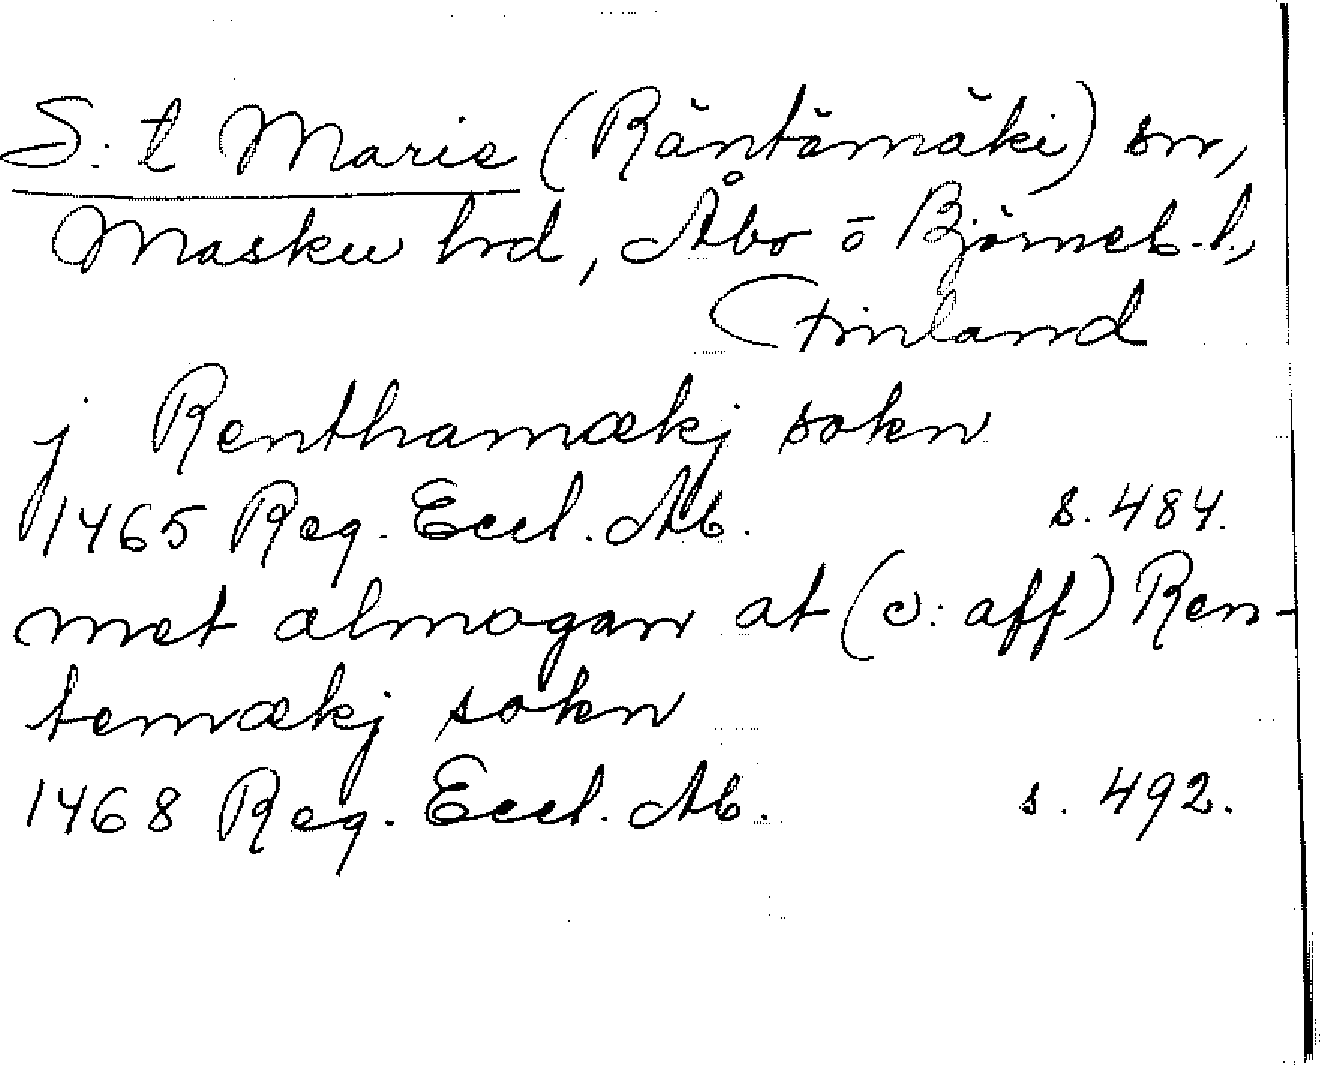 S:t Marie (Räntämäki) sn,
Masku hd, Åbo o Björneb. l.,
Finland
j Renthamækj sokn
1465 Reg. Eccl. Ab. s. 484.
met almogan at (ɔ: aff) Ren-
temækj sokn
1468 Reg. Eccl. Ab. s. 492.